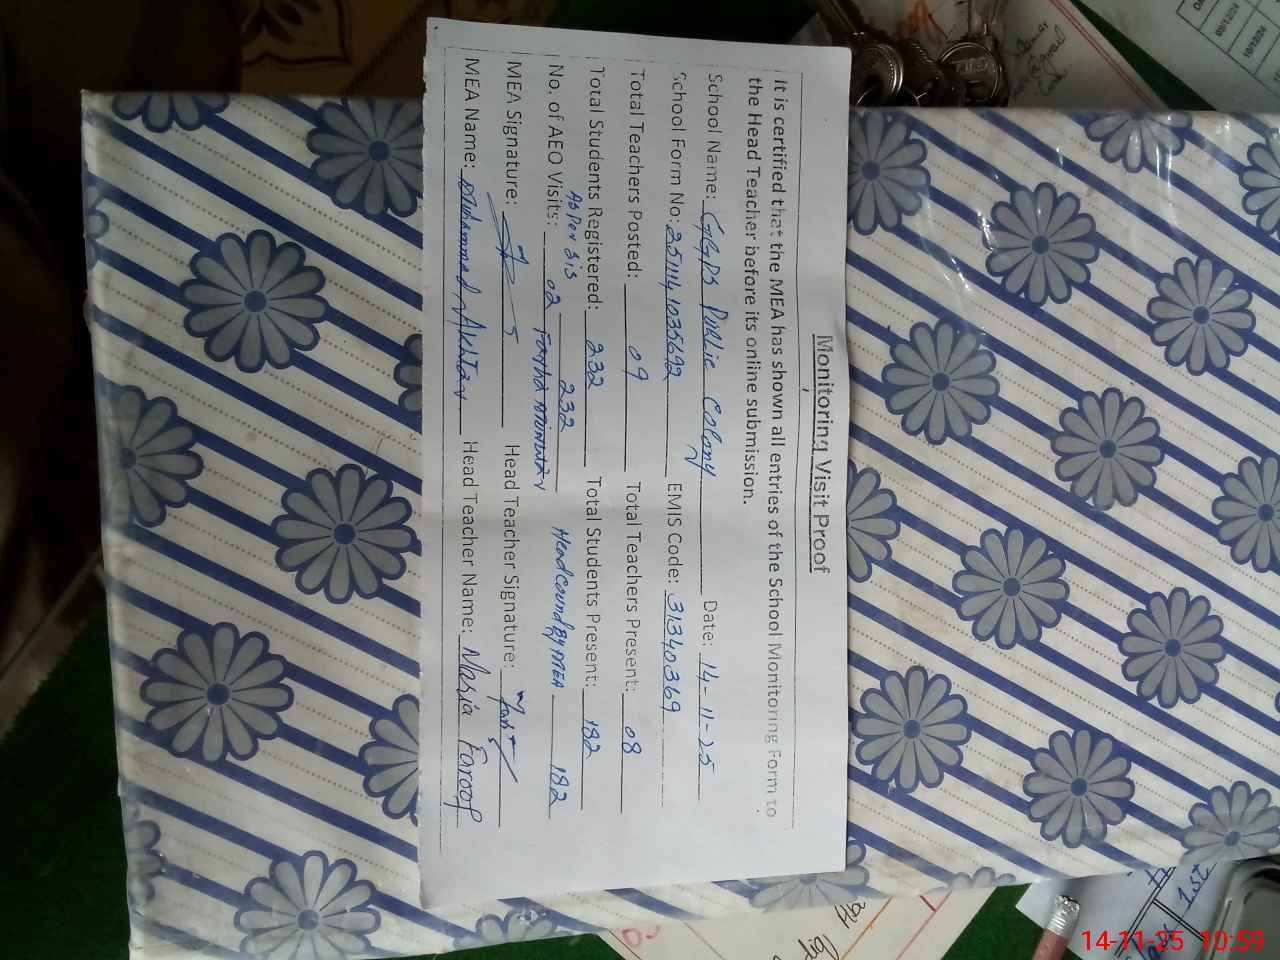 Monitoring Visit Proof
It is certified that the MEA has shown all entries of the School Monitoring Form to
the Head Teacher before its online submission.
School Name: GGPS Public Colony Date: 14-11-25
School Form No: EMIS Code: 31340369
Total Teachers Posted: 09 Total Teachers Present: 08
Total Students Registered: 232 Total Students Present: 182
As Per SIS 232 Head count By MEA 182
No. of AEO Visits: 02
MEA Signature: Head Teacher Signature:
MEA Name: Muhammad Akhtar Head Teacher Name: Nasia Farooq
1st
14-11-25 10:59